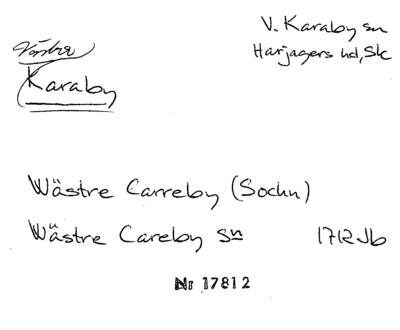 V. Karaby sn
Harjagers hd, Sk
Västra
Karaby
Wästre Carreby (Sochn)
Wästre Careby Sn 1712 Jb
Nr 17812